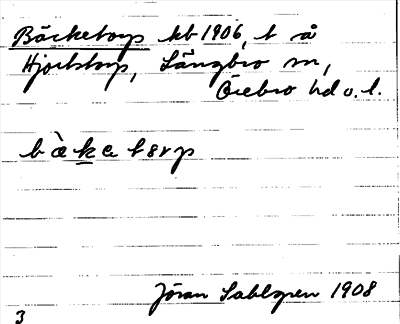 Bäcketorp kb 1906, t å
Hjortstorp, Längbro sn,
Örebro hd o. l.
bàketorp
Jöran Sahlgren 1908
3